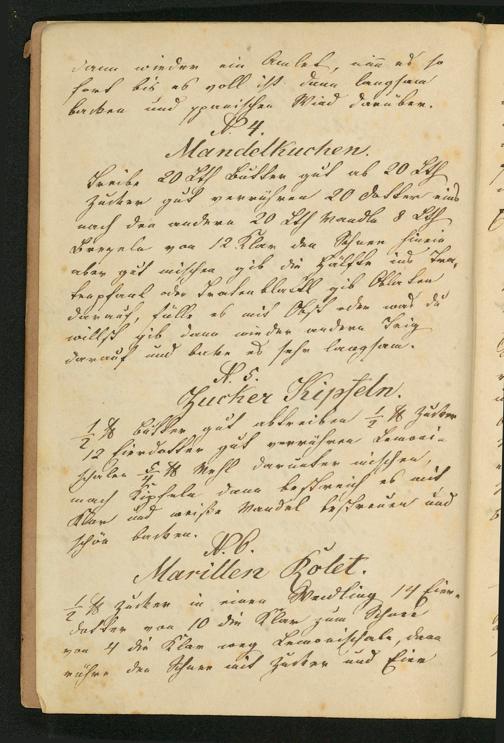 dann wieder ein Amlet, und so
fort bis es voll ist dann langsam
backen und spanischen Wind darüber.
N. 4.
Mandelkuchen.
Treibe 20 Lth Butter gut ab 20 Lth
Zucker gut verrühren 20 Dotter eins
nach den andern 20 Lth Mandln 8 Lth
von 12 Klar den Schnee hinein
aber gut mischen gib die Hälfte ins
oder gib Oblaten
darauf, fülle es mit Obst oder was du
willst, gib dann wieder andern Teig
darauf und backe es sehr langsam.
N. 5.
Zucker Kipfeln.
½ ℔ Butter gut abtreiben ½ ℔ Zucker
12 Eierdotter gut verrühren Lemoni-
schalen 5/4 ℔ Mehl darunter mischen,
mach Kipfeln dann bestreich es mit
Klar und weiße Mandel bestreuen und
schön backen.
N. 6.
Marillen Kolet.
½ ℔ Zucker in einen Weidling 14 Eier-
dotter von 10 die Klar zum Schnee
von 4 die Klar weg Lemonischale, dann
rühre den Schnee mit Zucker und Eier